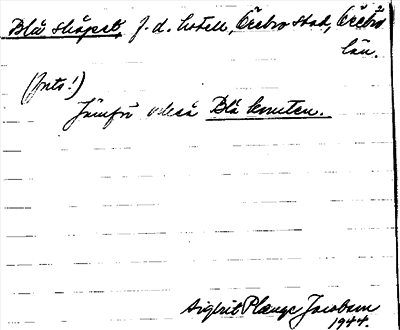 Blå skåpet, f.d. hotell, Örebro stad, Örebro
län.
(Jnts!)
Jämför också Blå knuten.
Sigbrit Plænge Jacobson
1944.